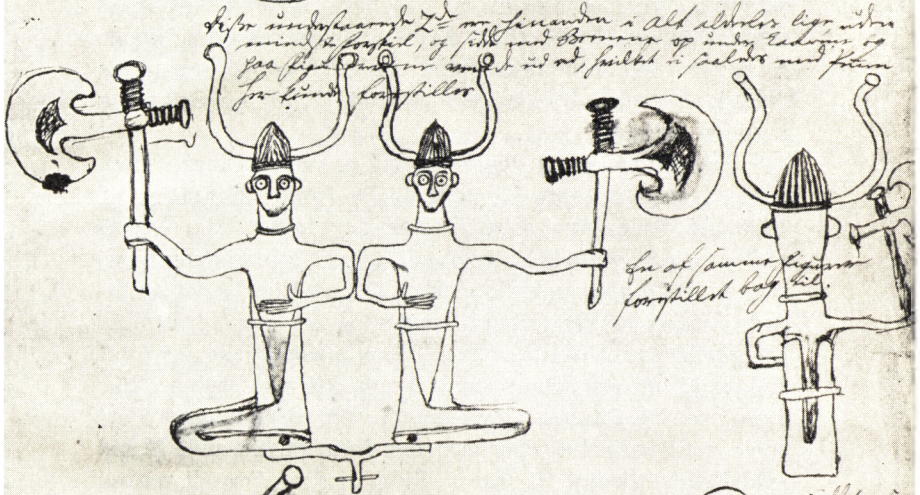 Disse understaaende 2de er hinanden i Alt aldeles lige uden
mindste forskiel, og sidde med Beenene op under og
paa ud ad, hvilket ei saaledes med Pennen
her kunde forestilles
En af samme Figurer
forestillet bag til.